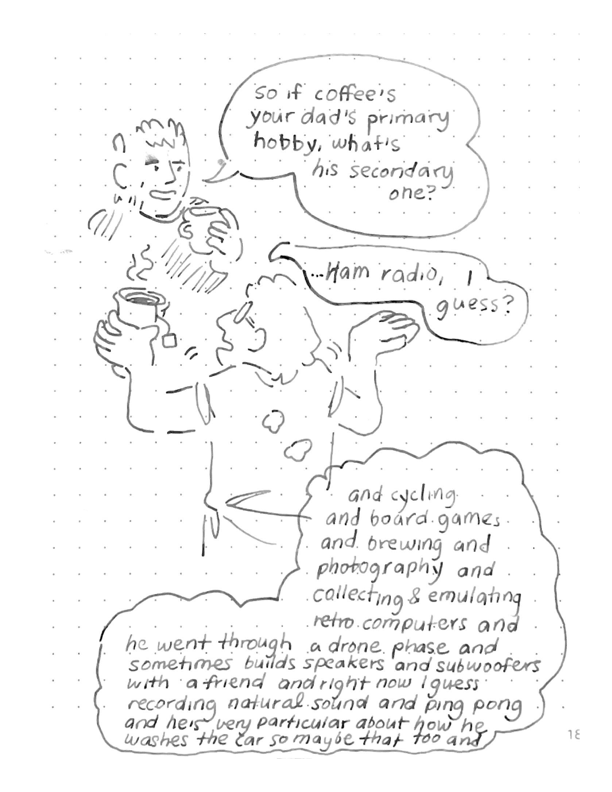 so if coffee's
your dad's primary
hobby, what's
his secondary
one?
...Ham radio, I
guess?
and cycling
and board games
and brewing and
photography and
collecting & emulating
retro computers and
he went through a drone phase and
sometimes builds speakers and subwoofers
with a friend and right now I guess
recording natural sound and ping pong
and he's very particular about how he
washes the car so maybe that too and
18